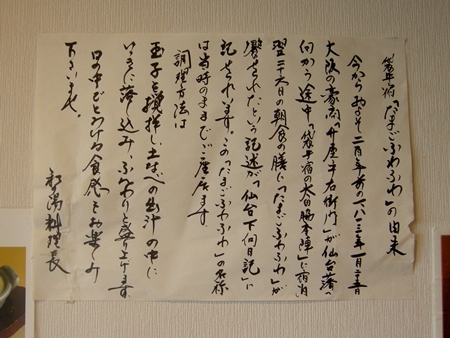 袋井宿「たまごふわふわ」の由来
今からおよそ二百年前の一八一三年一月二十五日
大阪の豪商「升屋平右衛門」が仙台藩へ
向かう途中「袋井宿の太田脇本陣」に宿泊
翌二十六日の朝食の膳に「たまごふわふわ」が
饗せられたという記述が「仙台下向日記」に
記せられています。この「たまごふわふわ」の名称
は当時のままでご座居ます
調理方法は
玉子を攪拌し土なべの出汁の中に
いっきに落し込み、ふんわりと盛り上げます
口の中でとろける食感をお楽しみ
下さいませ。
料理長